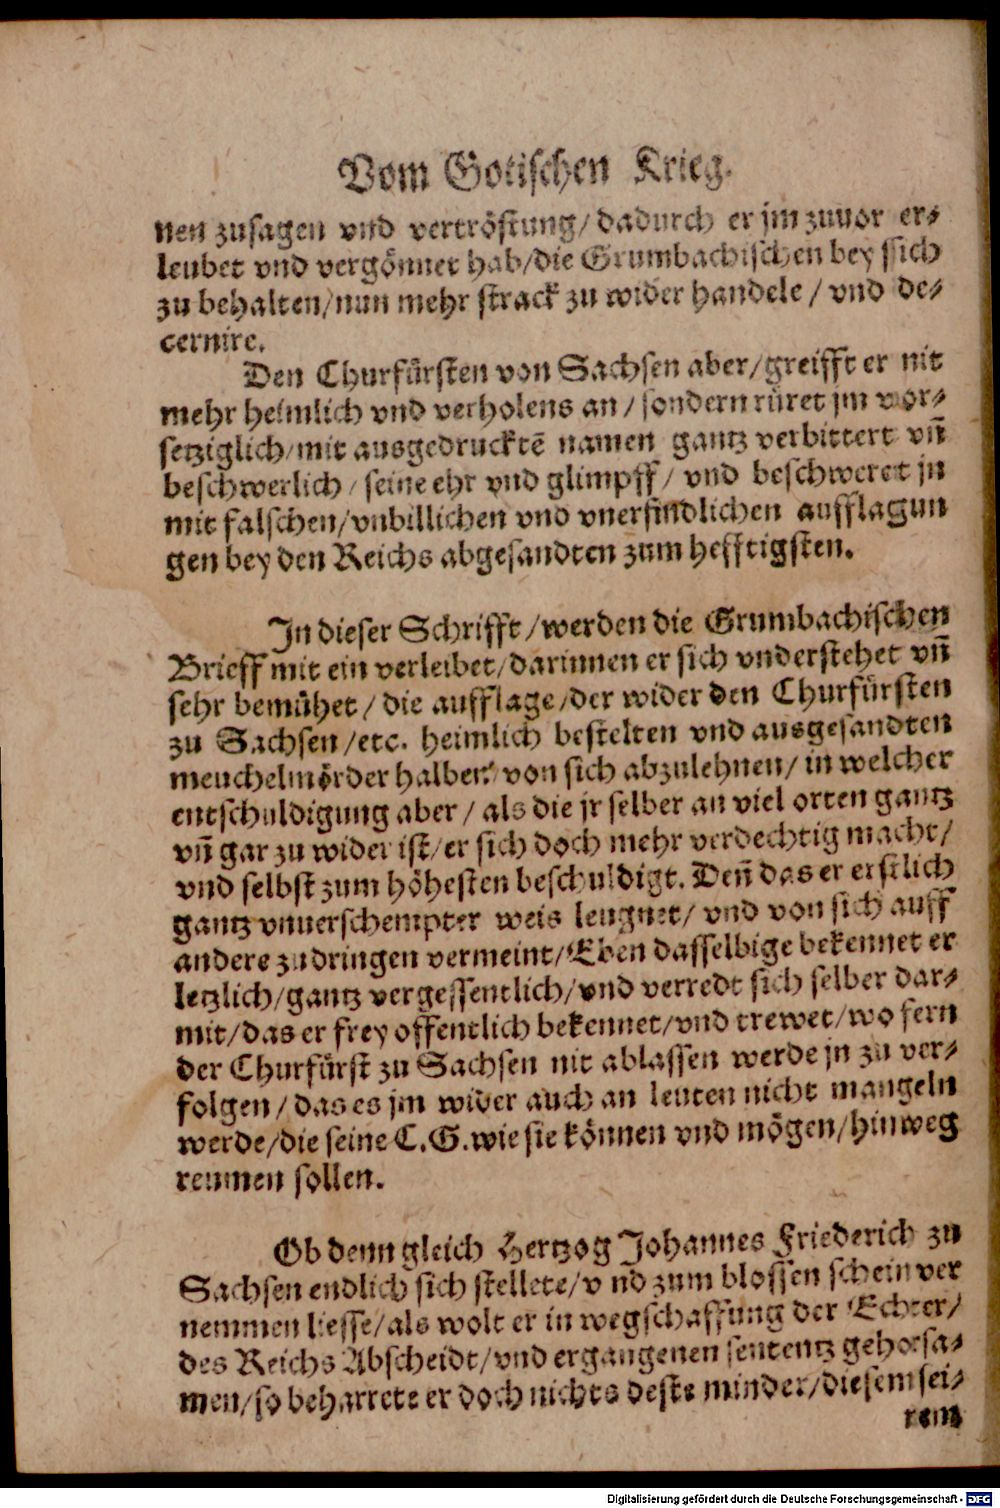 Vom Gotischen Krieg.
nen zusagen vnd vertröstung/ dadurch er jm zuuor er-
leubet vnd vergönnet hab/die Grumbachischen bey sich
zu behalten/nun mehr strack zu wider handele / vnd de-
cernire.
Den Churfürsten von Sachsen aber/greifft er nit
mehr heimlich vnd verholens an / sondern rüret jm vor-
setziglich/mit ausgedrucktē namen gantz verbittert vn̄
beschwerlich / seine ehr vnd glimpff / vnd beschweret jn
mit falschen/vnbillichen vnd vnerfindlichen aufflagun
gen bey den Reichs abgesandten zum hefftigsten.
In dieser Schrifft /werden die Grumbachischen
Brieff mit ein verleibet/darinnen er sich vnderstehet vn̄
sehr bemühet / die aufflage /der wider den Churfürsten
zu Sachsen /etc. heimlich bestelten vnd ausgesandten
meuchelmörder halben von sich abzulehnen/ in welcher
entschuldigung aber / als die jr selber an viel orten gantz
vn̄ gar zu wider ist/er sich doch mehr verdechtig macht/
vnd selbst zum höhesten beschuldigt. Den̄ das er erstlich
gantz vnuerschempter weis leugnet/ vnd von sich auff
andere zudringen vermeint/Eben dasselbige bekennet er
letzlich/gantz vergessentlich/vnd verredt sich selber dar-
mit/das er frey offentlich bekennet/vnd trewet/wo fern
der Churfürst zu Sachsen nit ablassen werde jn zu ver-
folgen / das es jm wider auch an leuten nicht mangeln
werde/die seine C.G.wie sie können vnd mögen/hinweg
reumen sollen.
Ob denn gleich Hertzog Johannes Friederich zu
Sachsen endlich sich stellete/v nd zum blossen schein ver
nemmen liesse/als wolt er in wegschaffung der Echter/
des Reichs Abscheidt/vnd ergangenen sententz gehorsa-
men/so beharrete er doch nichts deste minder/diesem sei-
rem